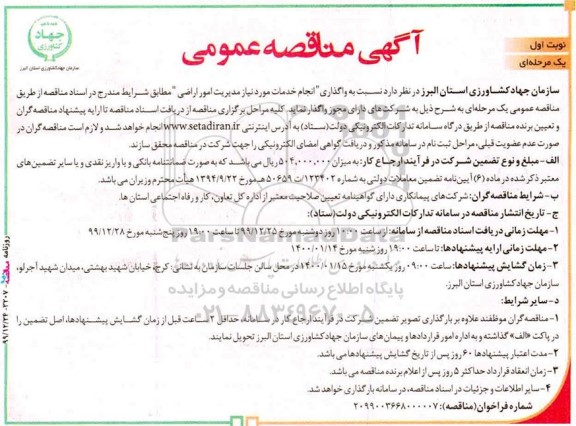 نوبت اول
یک مرحله‌ای
آگهی مناقصه عمومی
جهاد کشاورزی
سازمان جهاد کشاورزی استان البرز
سازمان جهاد کشاورزی استان البرز در نظر دارد نسبت به واگذاری "انجام خدمات مورد نیاز مدیریت امور اراضی" مطابق شرایط مندرج در اسناد مناقصه از طریق
مناقصه عمومی یک مرحله‌ای به شرح ذیل به شرکت های دارای مجوز واگذار نماید. کلیه مراحل برگزاری مناقصه از دریافت اسناد مناقصه تا ارایه پیشنهاد مناقصه‌گران
و تعیین برنده مناقصه از طریق درگاه سامانه تدارکات الکترونیکی دولت (ستاد) به آدرس اینترنتی www.setadiran.ir انجام خواهد شد و لازم است مناقصه گران در
صورت عدم عضویت قبلی، مراحل ثبت نام در سامانه مذکور و دریافت گواهی امضای الکترونیکی را جهت شرکت در مناقصه محقق سازند.
الف- مبلغ و نوع تضمین شرکت در فرآیند ارجاع کار: به میزان ۵۰۴,۰۰۰,۰۰۰ ریال می باشد که به صورت ضمانتنامه بانکی و یا واریز نقدی و یا سایر تضمین‌های
معتبر ذکر شده در ماده (۶) آیین‌نامه تضمین معاملات دولتی به شماره ۱۲۳۴۰۲/ت ۵۰۶۵۹ هـ مورخ ۱۳۹۴/۹/۲۲ هیأت محترم وزیران می باشد.
ب- شرایط مناقصه گران: شرکت‌های پیمانکاری دارای گواهینامه تعیین صلاحیت معتبر از اداره کل تعاون، کار و رفاه اجتماعی استان ها.
ج- تاریخ انتشار مناقصه در سامانه تدارکات الکترونیکی دولت (ستاد):
۱- مهلت زمانی دریافت اسناد مناقصه از سامانه: از ساعت ۱۰:۰۰ روز دوشنبه مورخ ۹۹/۱۲/۲۵ تا ساعت ۱۹:۰۰ روز پنج‌شنبه مورخ ۹۹/۱۲/۲۸
۲- مهلت زمانی ارایه پیشنهادها: تا ساعت ۱۹:۰۰ روز شنبه مورخ ۱۴۰۰/۰۱/۱۴
۳- زمان گشایش پیشنهادها: ساعت ۰۹:۰۰ روز یکشنبه مورخ ۱۴۰۰/۰۱/۱۵ در محل سالن جلسات سازمان به نشانی: کرج، خیابان شهید بهشتی، میدان شهید آجرلو،
سازمان جهاد کشاورزی استان البرز.
د- سایر شرایط:
۱- مناقصه‌گران موظفند علاوه بر بارگذاری تصویر تضمین شرکت در فرآیند ارجاع کار در سامانه، حداقل ۲ ساعت قبل از زمان گشایش پیشنهادها، اصل تضمین را
در پاکت «الف» گذاشته و به اداره امور قراردادها و پیمان های سازمان جهاد کشاورزی استان البرز تحویل نمایند.
۲- مدت اعتبار پیشنهادها ۶۰ روز پس از تاریخ گشایش پیشنهادها می باشد.
۳- زمان انعقاد قرارداد حداکثر ۵ روز پس از اعلام برنده مناقصه می باشد.
۴- سایر اطلاعات و جزئیات در اسناد مناقصه، در سامانه بارگذاری خواهد شد.
شماره فراخوان (مناقصه): ۲۰۹۹۰۰۳۶۶۸۰۰۰۰۰۷
ParsNamadData
پایگاه اطلاع رسانی مناقصه و مزایده
۰۲۱-۸۸۳۴۹۶۷۰-۵